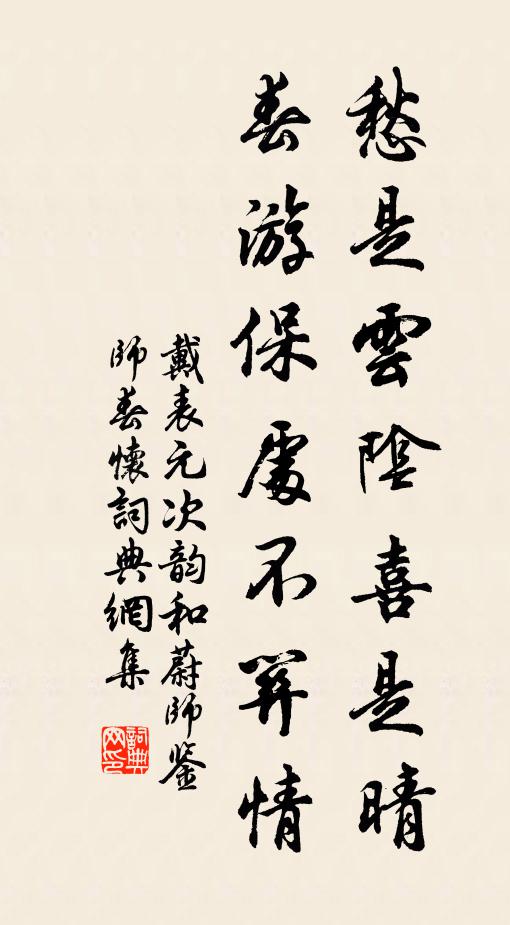 愁是雲陰喜是晴
春游保處不算情
戴表元次韵和蔚師鑒
師春懷詞典網集
詞典网印